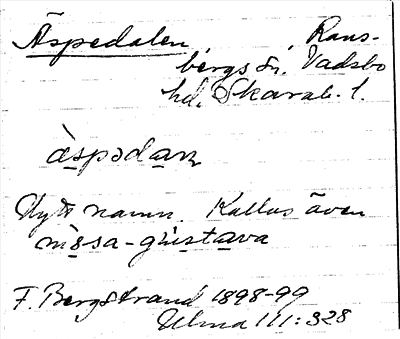 Äspedalen, Rans-
bergs sn, Vadsbo
hd, Skarab. l.
àspədaɲ
Nytt namn. Kallas även
mòsa-gùstava
F. Bergstrand 1898-99
Ulma 111:328